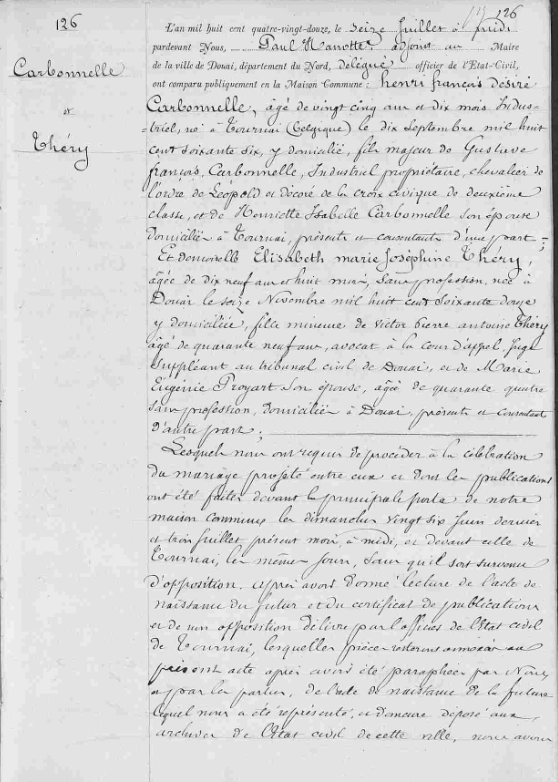 126
126
Carbonnelle
et
Théry
L'an mil huit cent quatre-vingt-douze, le seize Juillet à midi
pardevant Nous, Paul Hanotte adjoint au Maire
de la ville de Douai, département du Nord, délégué officier de l'Etat-Civil,
ont comparu publiquement en la Maison Commune : henri françois désiré
Carbonnelle, âgé de vingt cinq ans et dix mois Indus-
triel, né à Tournai (Belgique) le dix Septembre mil huit
cent soixante six, y domicilié, fils majeur de Gustave
françois, Carbonnelle, Industriel propriétaire, chevalier de
l'ordre de Léopold et décoré de la croix civique de deuxième
classe, et de Henriette Isabelle Carbonnelle son épouse
domiciliés à Tournai, présents et consentants d'une part ;
Et demoiselle Elisabeth marie Joséphine Théry,
âgée de dix neuf ans et huit mois, sans profession, née à
Douai le seize Novembre mil huit cent soixante douze
y domiciliée, fille mineure de Victor pierre antoine Théry
âgé de quarante neuf ans, avocat à la cour d'appel, Juge
Suppléant au tribunal civil de Douai, et de Marie
Eugénie Proyart son épouse, âgée de quarante quatre
sans profession, domiciliés à Douai, présents et consentant
d'autre part ;
Lesquels nous ont requis de procéder à la célébration
du mariage projeté entre eux et dont les publications
ont été faites devant la principale porte de notre
maison commune les dimanches vingt six Juin dernier
et trois Juillet présent mois, à midi, et devant celle de
Tournai, les mêmes jours, sans qu'il soit survenu
d'opposition. après avoir donné lecture de l'acte de
naissance du futur et du certificat de publications
et de non opposition délivré par l'officier de l'Etat civil
de Tournai, lesquelles pièces resteront annexées au
présent acte après avoir été paraphées par Nous
et par les parties, de l'acte de naissance de la future
lequel nous a été représenté, et demeure déposé aux
archives de l'Etat civil de cette ville, nous avons